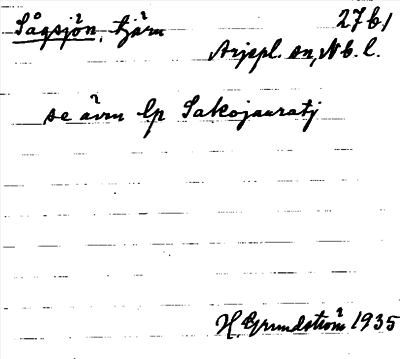 Sågsjön, tjärn 27b1
Arjepl. sn, Nb. l.
se även lp Sakojauratj
H. Grundström 1935